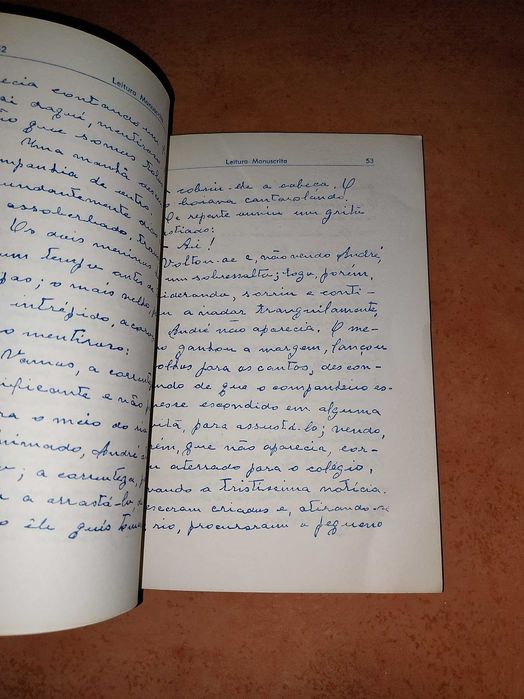 2
Leitura Manuscrita
ecia contando um
ai daqui, mentiram
ão que somos
Uma manhã
ompanhia de outro
undantemente
assoberbado,
Os dois meninos
um tempo antes de
pas; o mais velho,
intrépido,
o mentiroso:
Vamos, a corrente
ificante e não
ra o meio do rio
nimado, André
; a correnteza,
a arrastá-lo,
o êle quis
Leitura Manuscrita 53
cobriu-lhe a cabeça. O
boiava cantarolando.
De repente ouviu um grito
stiado:
- Ai!
Voltou-se e, não vendo André,
um sobressalto; logo, porém,
siderando, sorriu e conti-
u a nadar tranquilamente,
André não aparecia. O me-
o ganhou a margem, lançou
olhos para os cantos, descon-
ando de que o companheiro es-
vesse escondido em alguma
uita, para assustá-lo; vendo,
ém, que não aparecia, cor-
u aterrado para o colégio,
vando a tristíssima notícia.
esceram criados e, atirando-se
rio, procuraram o pequeno